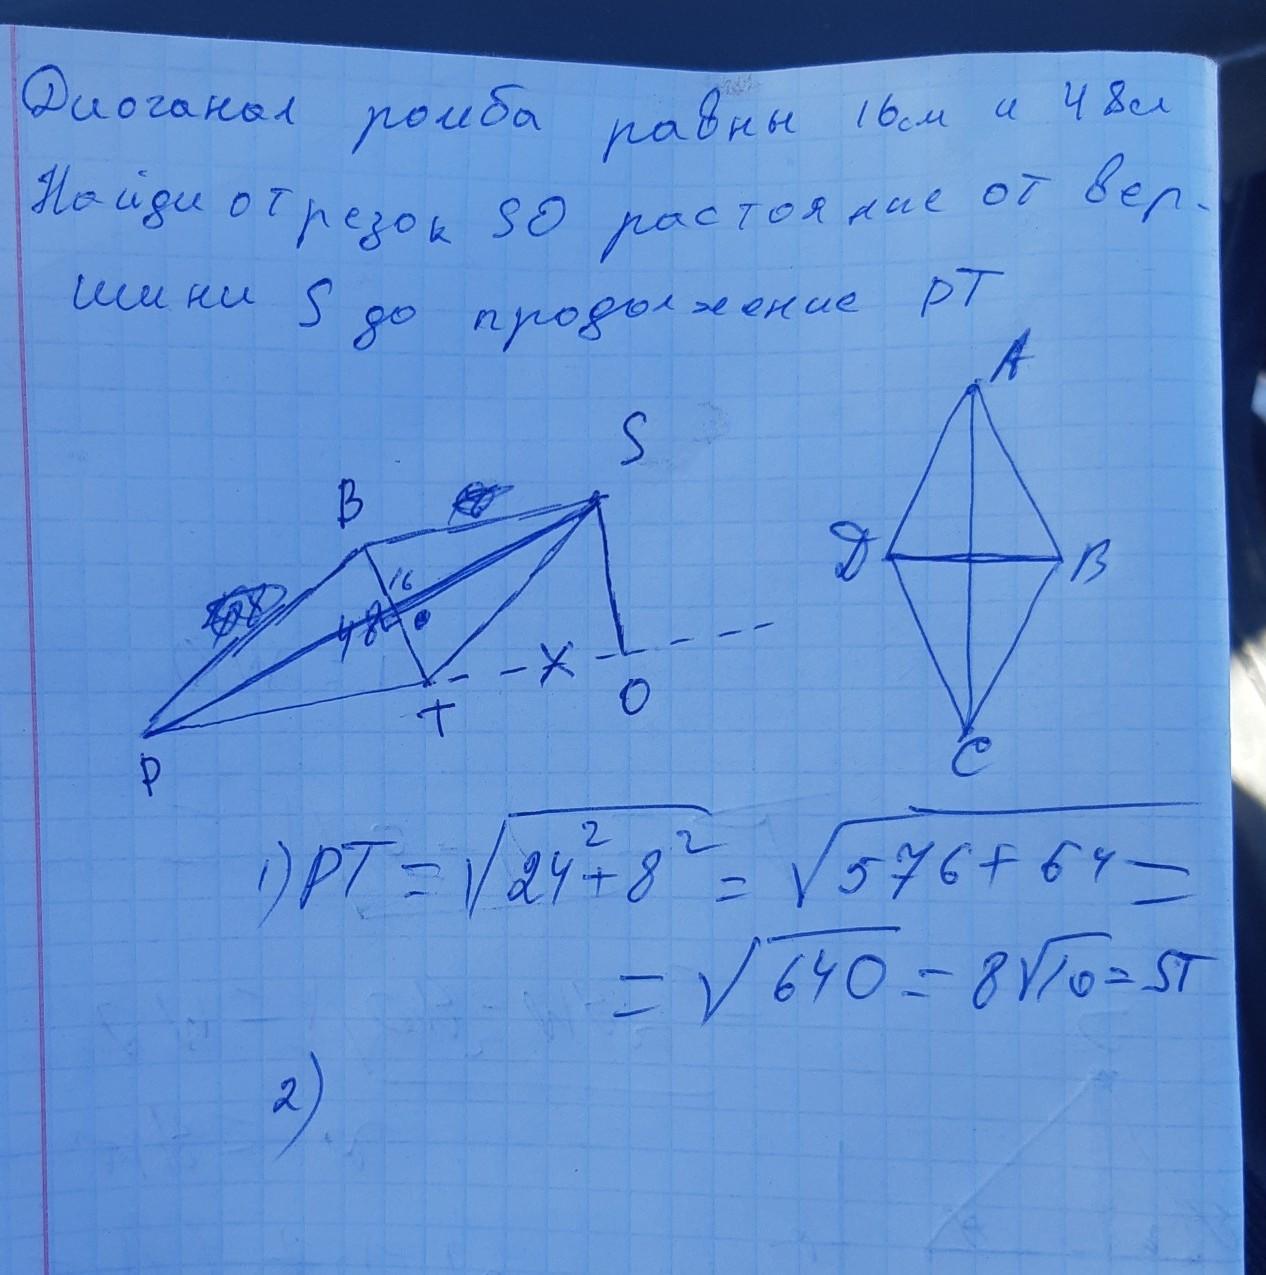 Диоганал ромба равны 16см и 48см
Найди отрезок SO растояние от вер-
шини S до продолжение PT
A
S
B
16
48
D
B
X
T
O
P
C
1) PT = √24²+8² = √576+64 =
= √640 = 8√10 = ST
2)